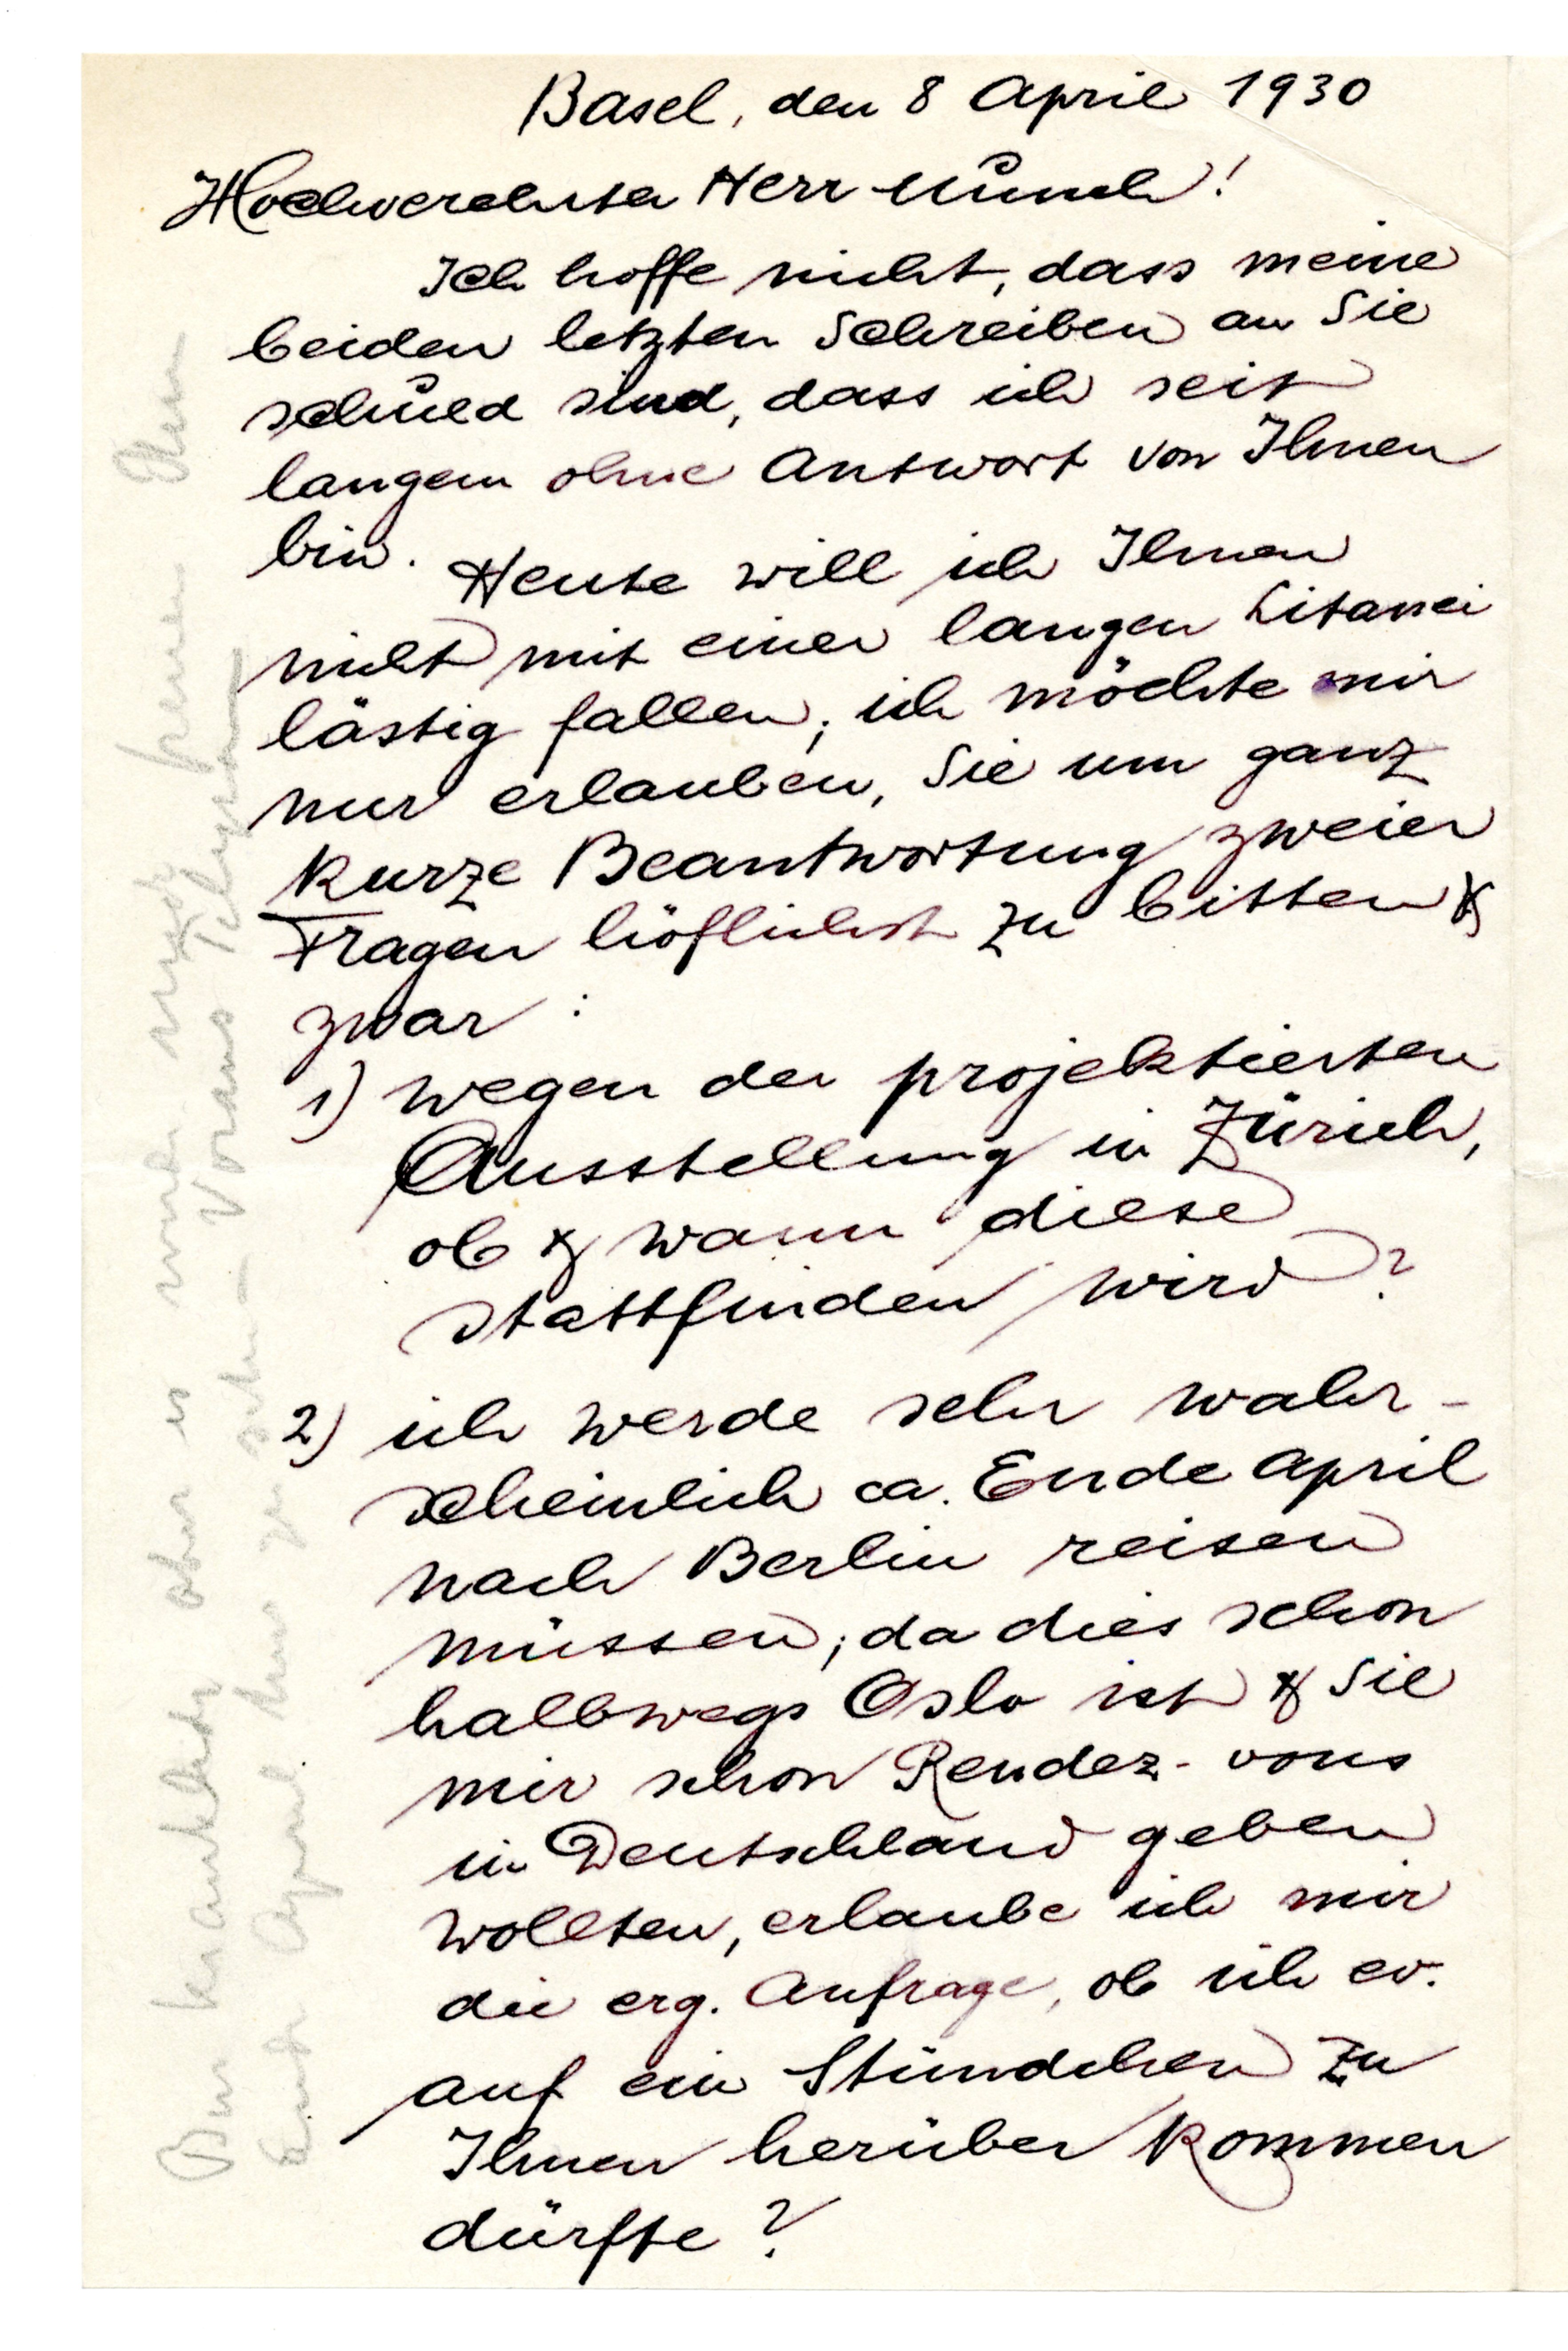 Basel, den 8 April 1930
Hochverehrter Herr Munch!
Ich hoffe nicht, dass meine
beiden letzten Schreiben an Sie
schuld sind, dass ich seit
langem ohne Antwort von Ihnen
bin. Heute will ich Ihnen
nicht mit einer langen Litanei
lästig fallen, ich möchte mir
nur erlauben, Sie um ganz
kurze Beantwortung zweier
Fragen höflichst zu bitten &
zwar:
1) wegen der projektierten
Ausstellung in Zürich,
ob & wann diese
stattfinden wird?
2) ich werde sehr wahr-
scheinlich ca. Ende April
nach Berlin reisen
müssen; da dies schon
halbwegs Oslo ist & Sie
mir schon Rendez-vous
in Deutschland geben
wollten, erlaube ich mir
die erg. Anfrage, ob ich ev.
auf ein Stündchen zu
Ihnen herüber kommen
dürfte?
Bin krank
Ende April zu sehn – Voraus Telegram